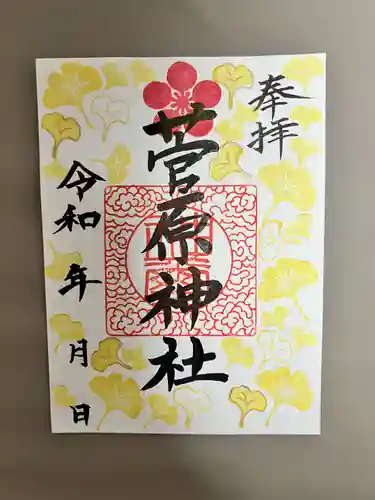 奉拝
菅原神社
令和 年 月 日